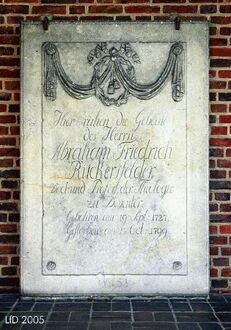 Hier ruhen die Gebeine
des Herrn
Abraham Friedrich
Rückersfelder
Doct: und Prof: der Theologie
zu Deventer
Gebohren am 19 Sept: 1727.
Gestorben am 15 Oct: 1799.
LfD 2005